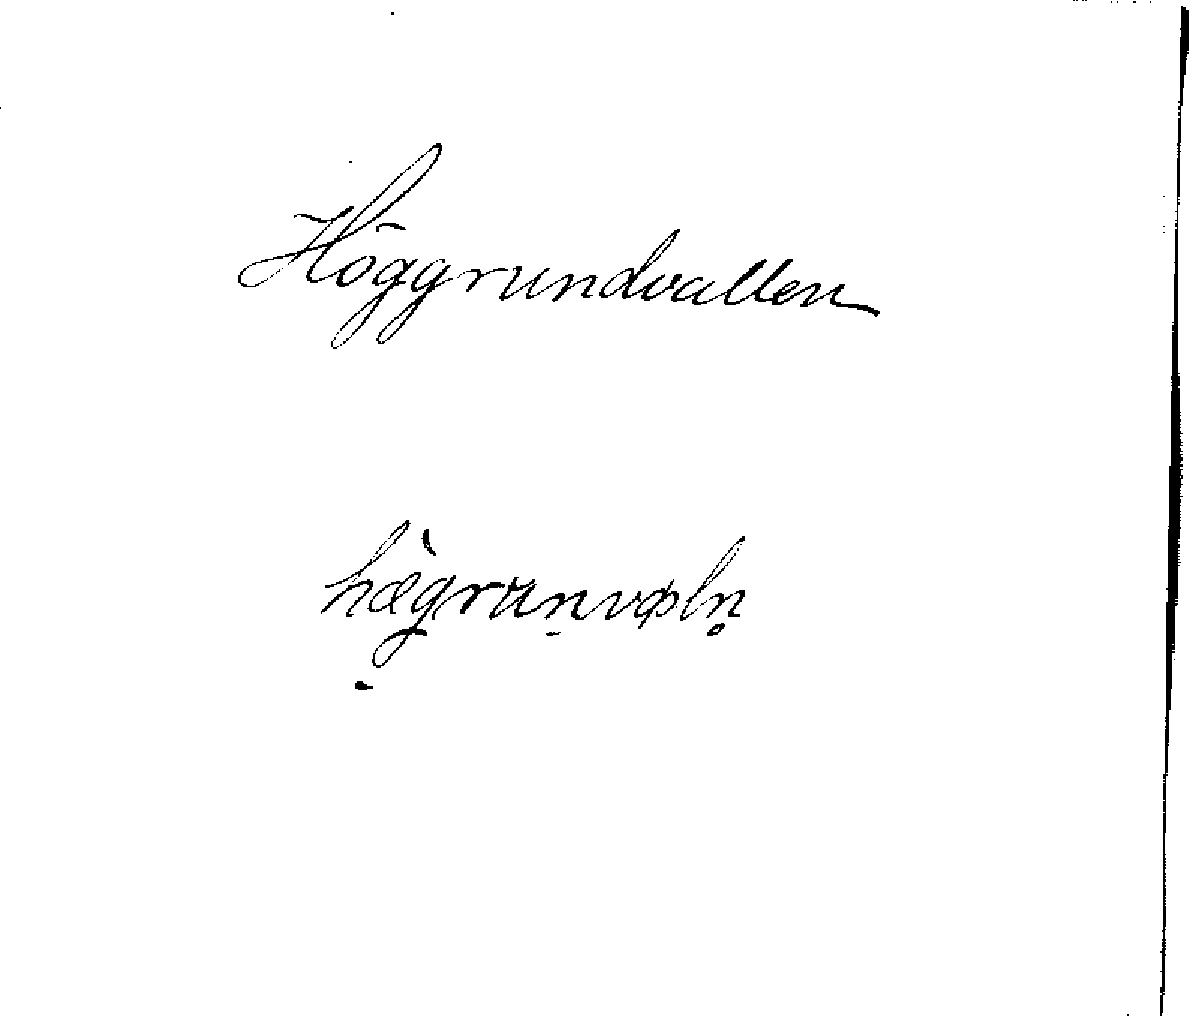 Höggrundvallen
hægrunvɸln̥